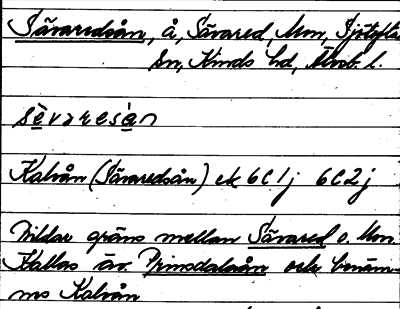 Sävaredsån, å, Sävared, Mon, Sjötofta
sn, Kinds hd, Älvsb. l.
sèvaresán
Kalvån (Sävaredsån) ek 6C1j 6C2j
Bildar gräns mellan Sävared o. Mon.
Kallas äv. Prinsdalaån och benäm-
ns Kalvån